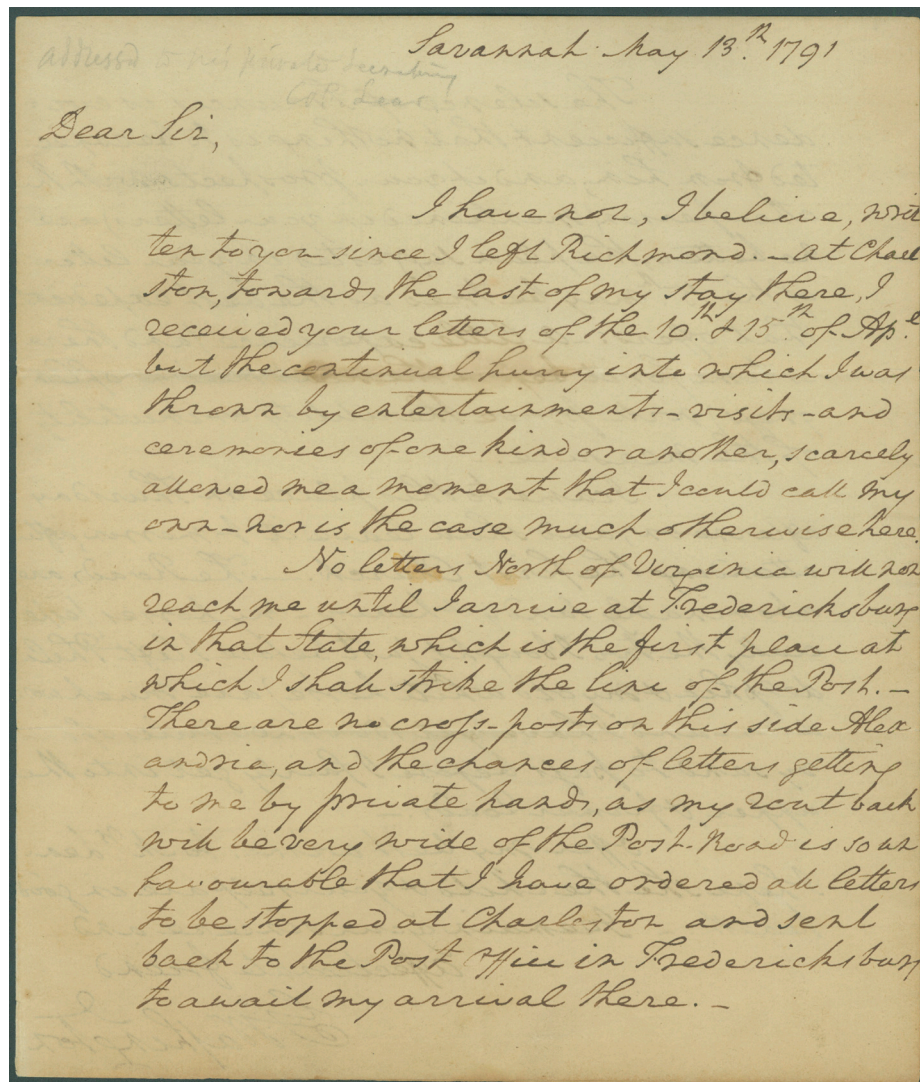 Savannah May 13.th 1791
addressed to his private Secretary
Col. Lear
Dear Sir,
I have not, I believe, writ
ten to you since I left Richmond. – at Charl
ston, towards the last of my stay there, I
received your letters of the 10.th & 15.th of Ap.l
but the continual hurry into which I was
thrown by entertainments – visits – and
ceremonies of one kind or another, scarcely
allowed me a moment that I could call my
own – nor is the case much otherwise here.
No letters North of Virginia will now
reach me until I arrive at Fredericksburg
in that State, which is the first place at
which I shall strike the line of the Post. –
There are no cross-posts on this side Alex
andria, and the chances of letters getting
to me by private hands, as my rout back
will be very wide of the Post-Road is so un
favourable that I have ordered all letters
to be stopped at Charleston and sent
back to the Post Office in Fredericksburg
to await my arrival there. –